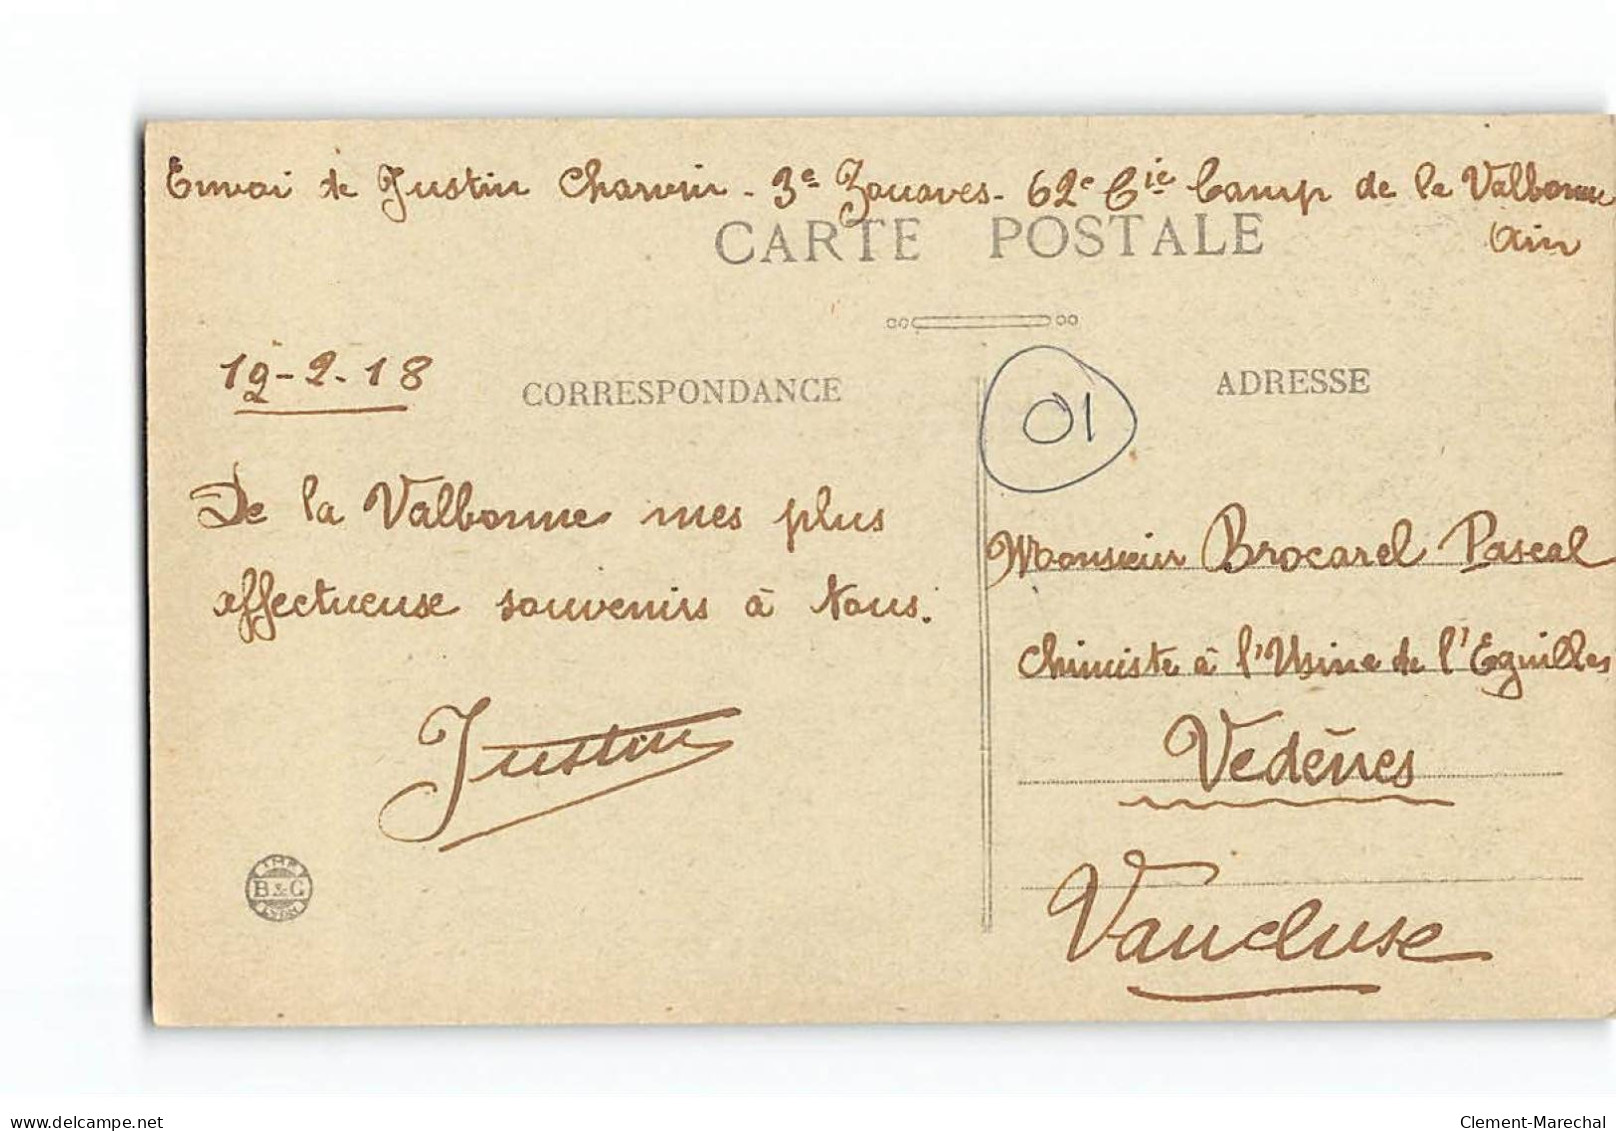 Envoi de Justin Charvin - 3e Zouaves - 62e Cie Camp de la Valbonne
Ain
CARTE POSTALE
19-2-18
CORRESPONDANCE
ADRESSE
01
De la Valbonne mes plus
affectueuse souvenirs à tous.
Justin
Monsieur Brocarel Pascal
Chimiste à l'Usine de l'Eguilles
Vedènes
Vaucluse
IMP.
B & G
LYON
delcampe.net
Clement-Marechal